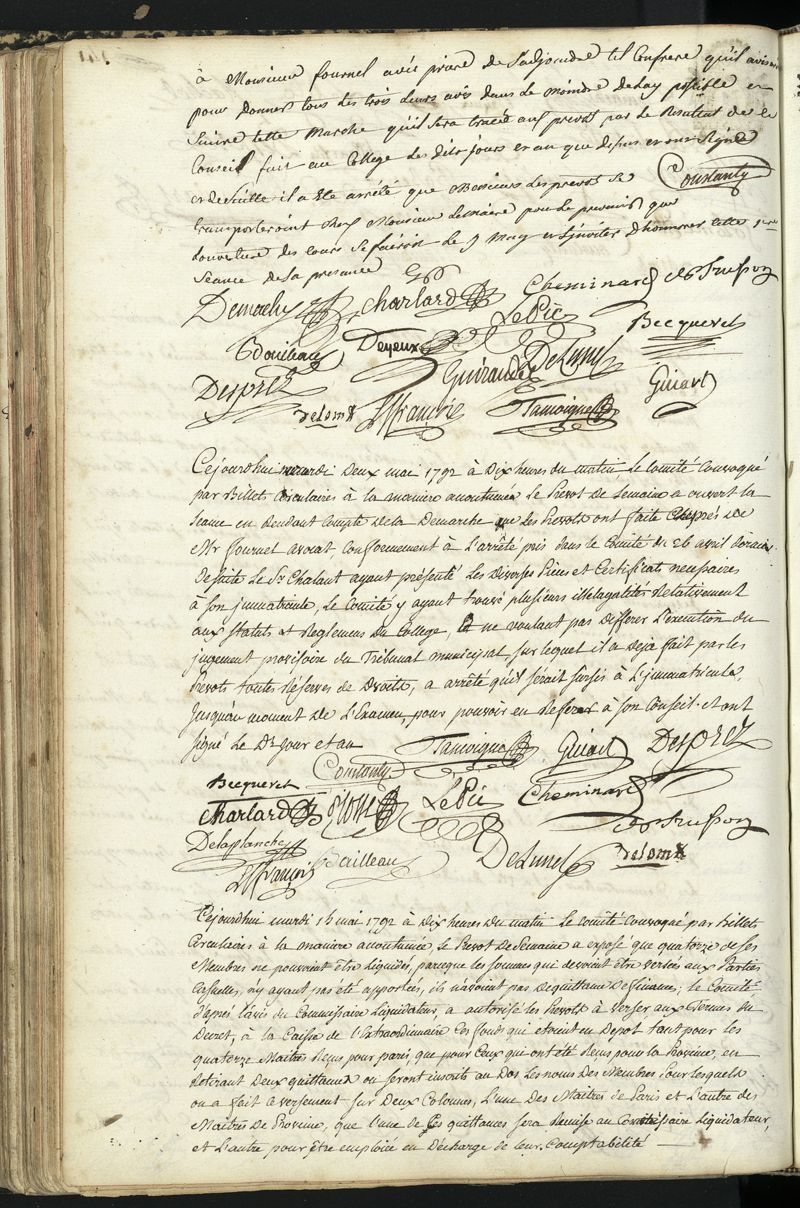 à Monsieur fournel avec priere de Sadjoindre tel Confrere qu'il avisera
pour donner tous les trois leurs avis dans le moindre delay possible et
Suivre cette Marche qu'il sera tracée aux prevots par le Resultat de ce
Conseil fait au College les dits jours et an que dessus et ont Signé
et de Suitte il a Ete arrêté que Messieurs les prevots se Coutanly
transporteroient chez Monsieur le maire pour le prevenir que
louverture des cours se feroit le 9 May et l'inviter d'honnorer cette
Seance de Sa presence
Demachy Charlard Cheminard Trusson
Bouilleau Deyeux LePic Becqueret
Desprez Guiraud DeLunel Guiart
Delom françois Tamoigne
Cejourdhui mercredi Deux mai 1792 à Dix heures du matin le Comité Convoqué
par Billets Circulaires à la maniere accoutumée le Prevot de Semaine a ouvert la
seance en Rendant Compte de la Demarche que les Prevots ont faite auprès de
Mr fournel avocat, Conformement à L'arrêté pris dans le Comité du 26 avril dernier.
De suite le Sr Chalaut ayant présenté les Diverses Pieces et Certificats necessaires
à son immatricule, le Comité y ayant trouvé plusieurs illegalités Relativement
aux Statuts et Reglemens du College, et ne voulant pas differer l'execution du
jugement provisoire du Tribunal municipal sur lequel il a Deja fait par les
Prevots toutes reserves de Droits, a arrêté qu'il seroit sursis à L'immatricule,
Jusqu'au moment de L'Examen, pour pouvoir en Referer à son Conseil. et ont
signé le Dt jour et an Tamoigne Guiart Desprez
Becqueret Coutanly
Charlard LePic Cheminard
Delaplanche Trusson
françois Bailleau DeLunel Delom
Cejourdhui mardi 15 mai 1792 à Dix heures Du matin le Comité Convoqué par Billets
Circulaires à la maniere accoutumée, le Prevot de Semaine a exposé que quatorze de ses
Membres ne pouvoient être Liquidés, parceque les sommes qui devoient être versées aux Parties
Casuelles, n'y ayant pas été apportées, ils n'avoient pas De quittance De finance; le Comité
d'après l'avis du Commissaire Liquidateur, a autorisé les Prevots à verser aux Termes du
Decret, à la Caisse de l'Extraordinaire les fonds qui etoient en Depot tant pour les
quatorze Maitres Reçus pour paris, que pour Ceux qui ont été Reçus pour la Province, en
Retirant Deux quittances ou seront inscrits au Dos les noms Des Membres pour lesquels
on a fait ce versement sur Deux Colonnes, L'une Des Maitres de Paris et L'autre des
Maitres De Province, que l'une de ses quittances sera Remise au Commissaire Liquidateur,
et L'autre pour être emploiée en Décharge de leur Comptabilité